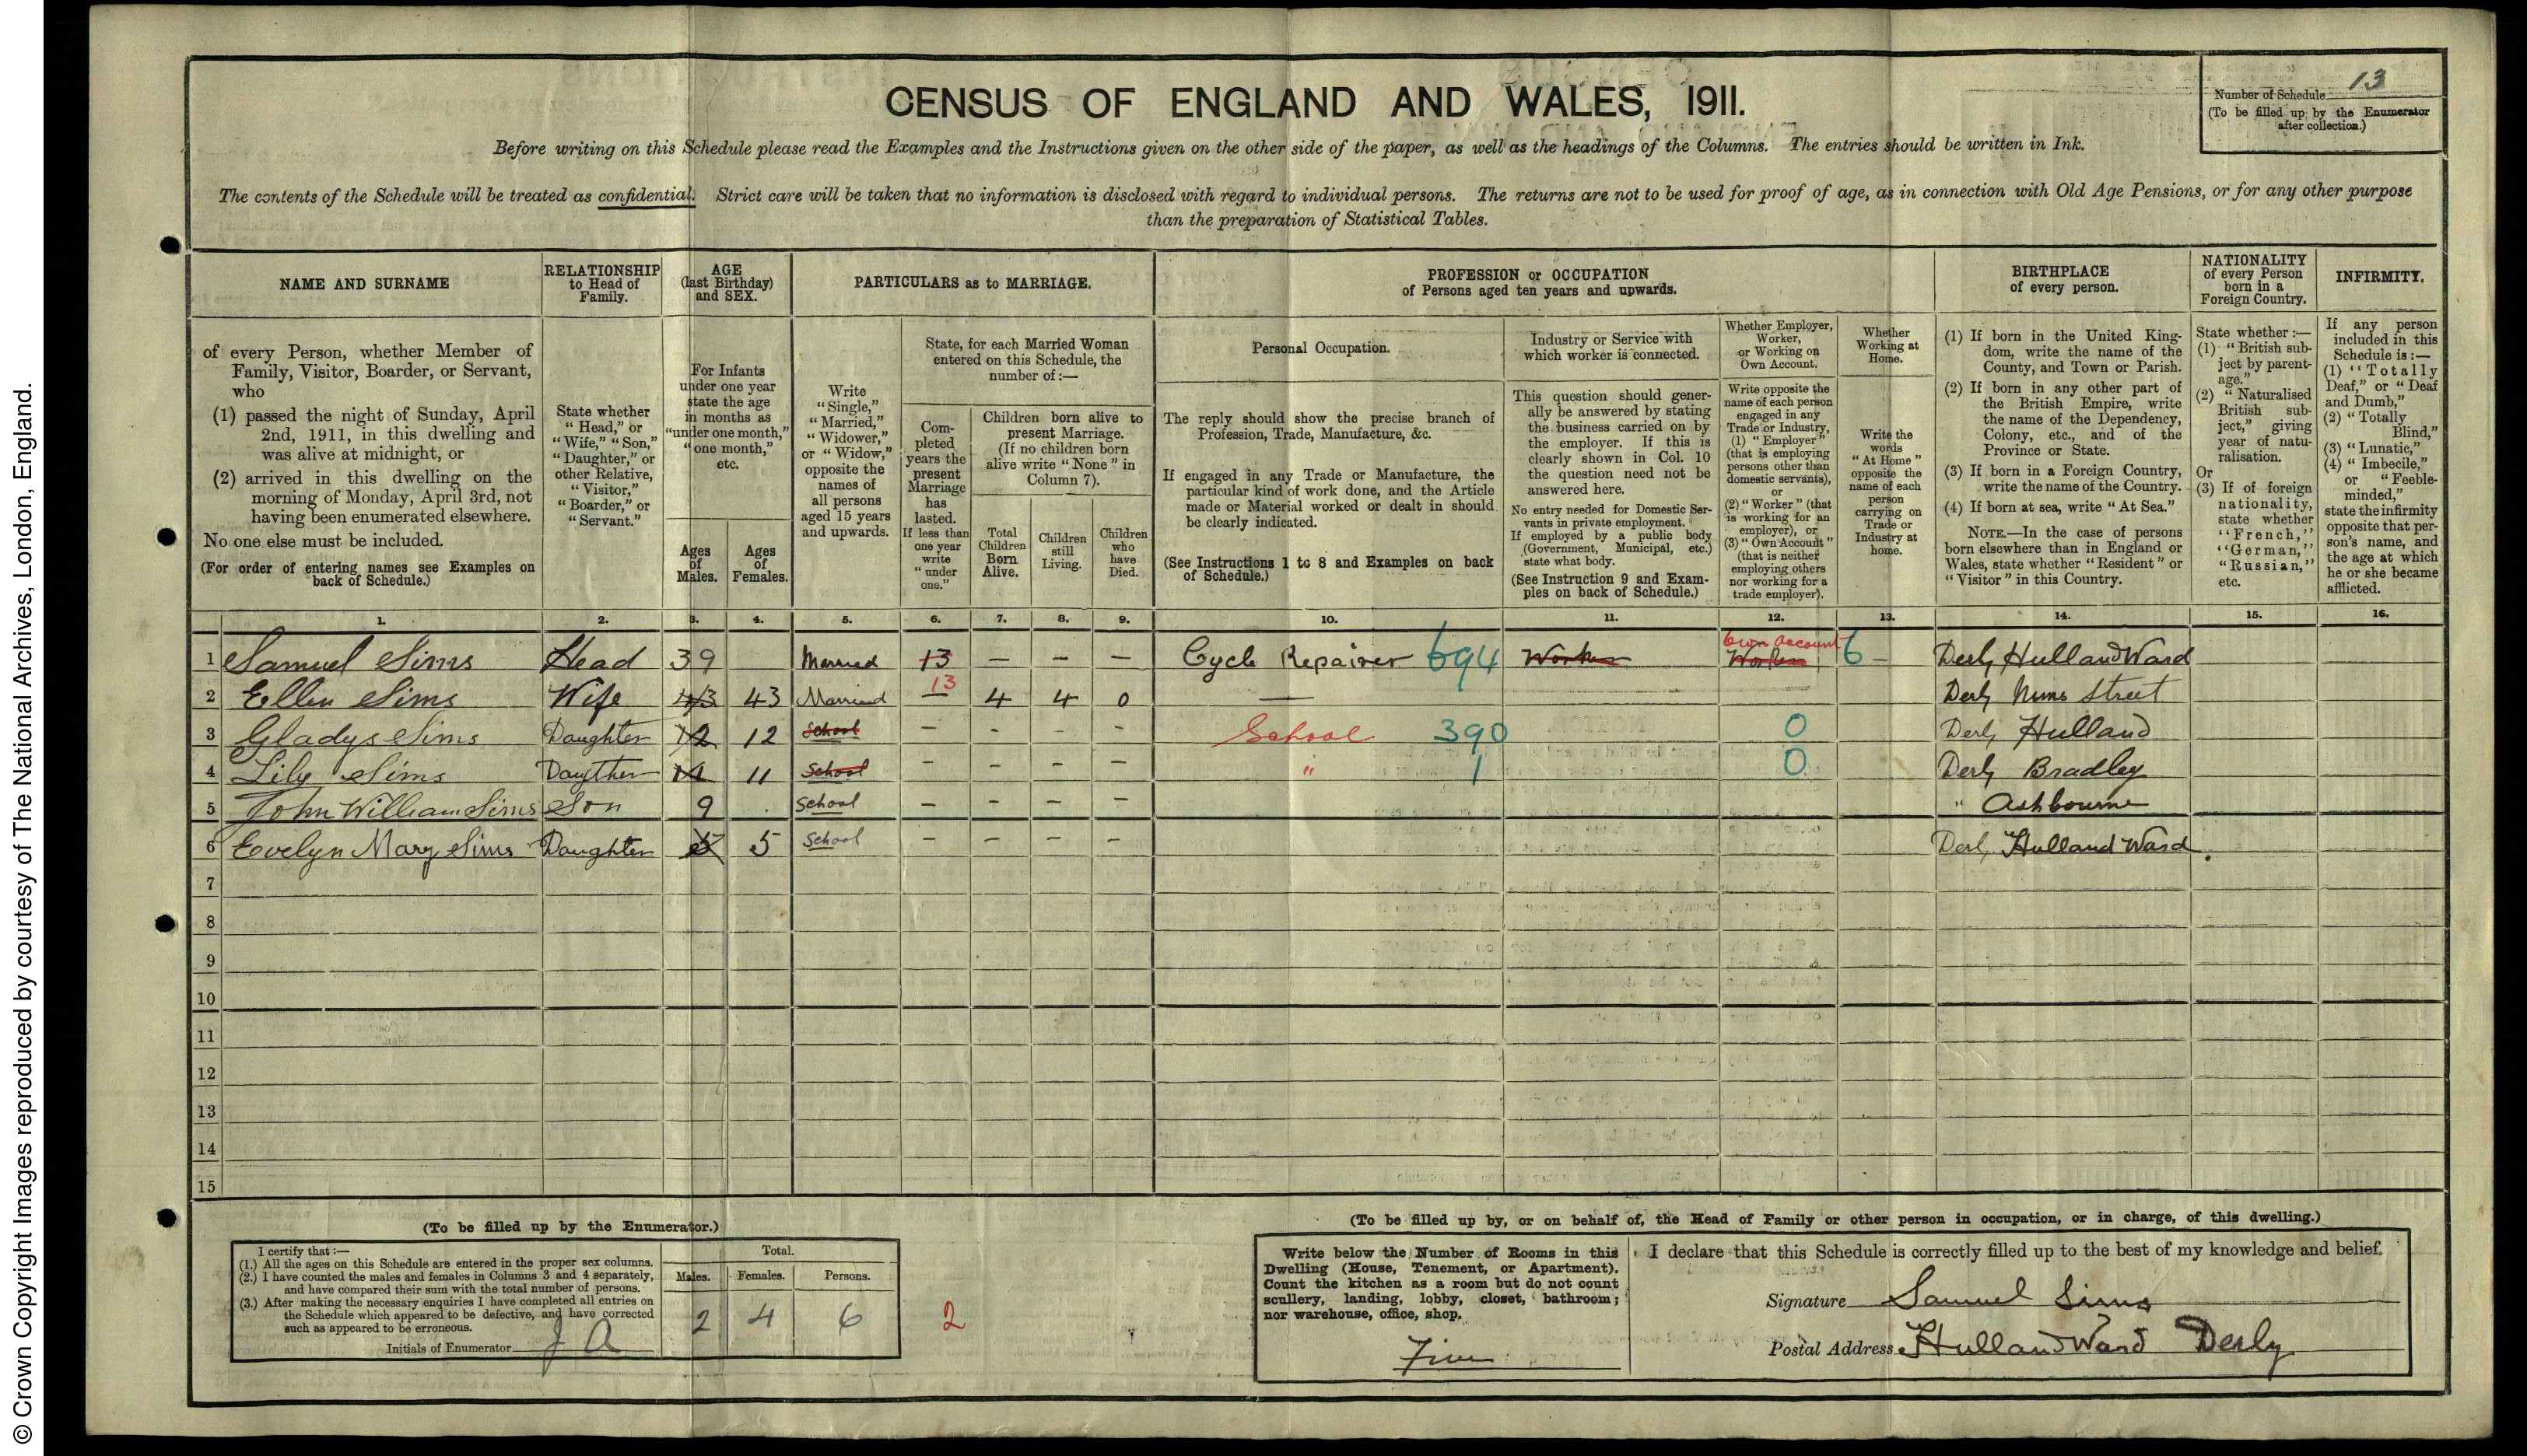 © Crown Copyright Images reproduced by courtesy of The National Archives, London, England.
CENSUS OF ENGLAND AND WALES, 1911.
Number of Schedule 13
(To be filled up by the Enumerator
after collection.)
Before writing on this Schedule please read the Examples and the Instructions given on the other side of the paper, as well as the headings of the Columns. The entries should be written in Ink.
The contents of the Schedule will be treated as confidential. Strict care will be taken that no information is disclosed with regard to individual persons. The returns are not to be used for proof of age, as in connection with Old Age Pensions, or for any other purpose
than the preparation of Statistical Tables.
NAME AND SURNAME
RELATIONSHIP
to Head of
Family.
AGE
(last Birthday)
and SEX.
PARTICULARS as to MARRIAGE.
PROFESSION or OCCUPATION
of Persons aged ten years and upwards.
BIRTHPLACE
of every person.
NATIONALITY
of every Person
born in a
Foreign Country.
INFIRMITY.
of every Person, whether Member of
Family, Visitor, Boarder, or Servant,
who
(1) passed the night of Sunday, April
2nd, 1911, in this dwelling and
was alive at midnight, or
(2) arrived in this dwelling on the
morning of Monday, April 3rd, not
having been enumerated elsewhere.
No one else must be included.
(For order of entering names see Examples on
back of Schedule.)
State whether
"Head," or
"Wife," "Son,"
"Daughter," or
other Relative,
"Visitor,"
"Boarder," or
"Servant."
For Infants
under one year
state the age
in months as
"under one month,"
"one month,"
etc.
Ages
of
Males.
Ages
of
Females.
Write
"Single,"
"Married,"
"Widower,"
or "Widow,"
opposite the
names of
all persons
aged 15 years
and upwards.
State, for each Married Woman
entered on this Schedule, the
number of:—
Com-
pleted
years the
present
Marriage
has
lasted.
If less than
one year
write
"under
one."
Children born alive to
present Marriage.
(If no children born
alive write "None" in
Column 7).
Total
Children
Born
Alive.
Children
still
Living.
Children
who
have
Died.
Personal Occupation.
The reply should show the precise branch of
Profession, Trade, Manufacture, &c.
If engaged in any Trade or Manufacture, the
particular kind of work done, and the Article
made or Material worked or dealt in should
be clearly indicated.
(See Instructions 1 to 8 and Examples on back
of Schedule.)
Industry or Service with
which worker is connected.
This question should gener-
ally be answered by stating
the business carried on by
the employer. If this is
clearly shown in Col. 10
the question need not be
answered here.
No entry needed for Domestic Ser-
vants in private employment.
If employed by a public body
(Government, Municipal, etc.)
state what body.
(See Instruction 9 and Exam-
ples on back of Schedule.)
Whether Employer,
Worker,
or Working on
Own Account.
Write opposite the
name of each person
engaged in any
Trade or Industry,
(1) "Employer"
(that is employing
persons other than
domestic servants),
or
(2) "Worker" (that
is working for an
employer), or
(3) "Own Account"
(that is neither
employing others
nor working for a
trade employer).
Whether
Working at
Home.
Write the
words
"At Home"
opposite the
name of each
person
carrying on
Trade or
Industry at
home.
(1) If born in the United King-
dom, write the name of the
County, and Town or Parish.
(2) If born in any other part of
the British Empire, write
the name of the Dependency,
Colony, etc., and of the
Province or State.
(3) If born in a Foreign Country,
write the name of the Country.
(4) If born at sea, write "At Sea."
NOTE.—In the case of persons
born elsewhere than in England or
Wales, state whether "Resident" or
"Visitor" in this Country.
State whether:—
(1) "British sub-
ject by parent-
age."
(2) "Naturalised
British sub-
ject," giving
year of natu-
ralisation.
Or
(3) If of foreign
nationality,
state whether
"French,"
"German,"
"Russian,"
etc.
If any person
included in this
Schedule is:—
(1) "Totally
Deaf," or "Deaf
and Dumb,"
(2) "Totally
Blind,"
(3) "Lunatic,"
(4) "Imbecile,"
or "Feeble-
minded,"
state the infirmity
opposite that per-
son's name, and
the age at which
he or she became
afflicted.
1. 2. 3. 4. 5. 6. 7. 8. 9. 10. 11. 12. 13. 14. 15. 16.
1 Samuel Sims Head 39 Married 13 — — — Cycle Repairer 694 Worker Own account Worker 6 Derby Hulland Ward
2 Ellen Sims Wife 43 43 Married 13 — 4 4 0 — Derby Street
3 Gladys Sims Daughter 12 12 School — - - - School 390 0 Derby Hulland
4 Lily Sims Daugther 11 11 School — — — — " 1 0 Derby Bradley
5 John William Sims Son 9 School — — — — " Ashbourne
6 Evelyn Mary Sims Daughter 5 5 School — — — — Derby Hulland Ward.
7
8
9
10
11
12
13
14
15
(To be filled up by the Enumerator.)
I certify that:—
(1.) All the ages on this Schedule are entered in the proper sex columns.
(2.) I have counted the males and females in Columns 3 and 4 separately,
and have compared their sum with the total number of persons.
(3.) After making the necessary enquiries I have completed all entries on
the Schedule which appeared to be defective, and have corrected
such as appeared to be erroneous.
Initials of Enumerator J A
Total.
Males. Females. Persons.
2 4 6
2
(To be filled up by, or on behalf of, the Head of Family or other person in occupation, or in charge, of this dwelling.)
Write below the Number of Rooms in this
Dwelling (House, Tenement, or Apartment).
Count the kitchen as a room but do not count
scullery, landing, lobby, closet, bathroom;
nor warehouse, office, shop.
Five
I declare that this Schedule is correctly filled up to the best of my knowledge and belief.
Signature Samuel Sims
Postal Address Hulland Ward Derby